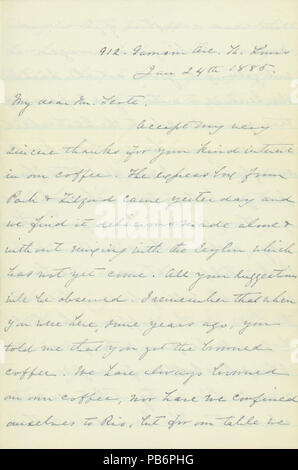 912 Garrison Ave. St. Louis
Jan 24th 1885.
My dear Mr. Scott.
Accept my very
sincere thanks for your kind interest
in our coffee. The express box from
Park & Tilford came yesterday and
we find it delicious made alone &
without mixing with the Ceylon which
has not yet come. All your suggestions
will be observed. I remember that when
you were here, some years ago, you
told me that you got the browned
coffee. We have always browned
our own coffee, nor have we confined
ourselves to Rio, but for our table we
alamy
Image ID: PB6PHG
www.alamy.com